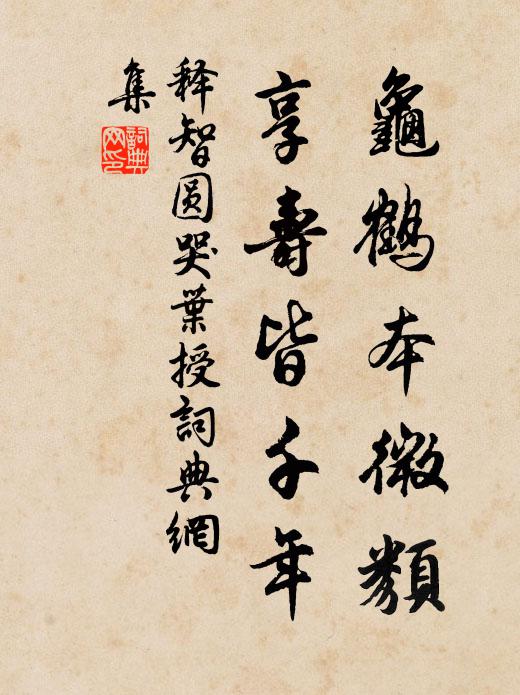 龜鶴本微類
享壽皆千年
释智圆哭葉授詞典網
集
詞典网印